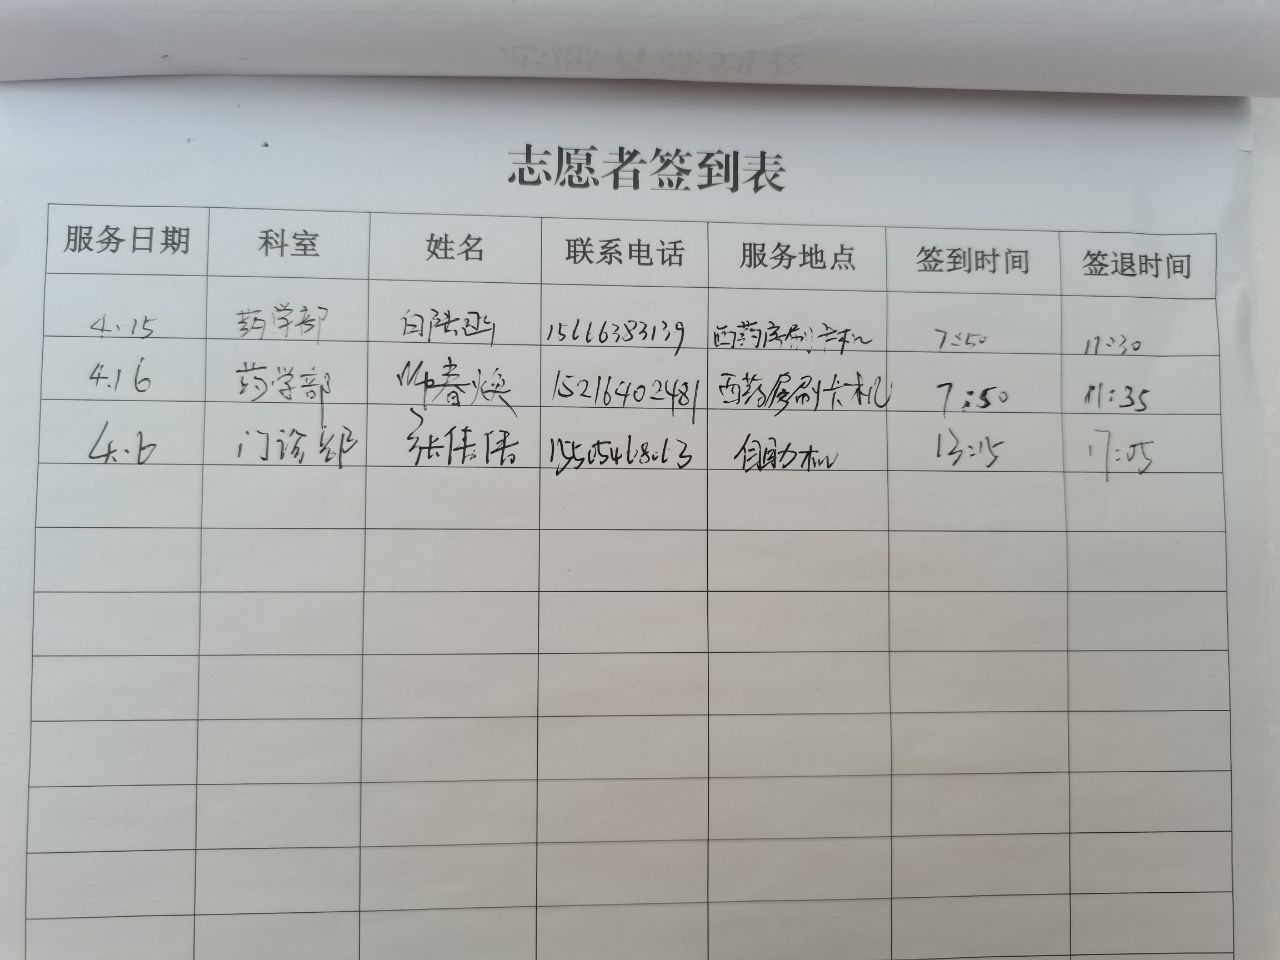 志愿者签到表
服务日期 科室 姓名 联系电话 服务地点 签到时间 签退时间
4.15 药学部 白 15666383139 西药房刷卡机 7:50 11:30
4.16 药学部 春焕 15216402481 西药房刷卡机 7:50 11:35
4.6 门诊部 张倩倩 自助机 13:15 17:05